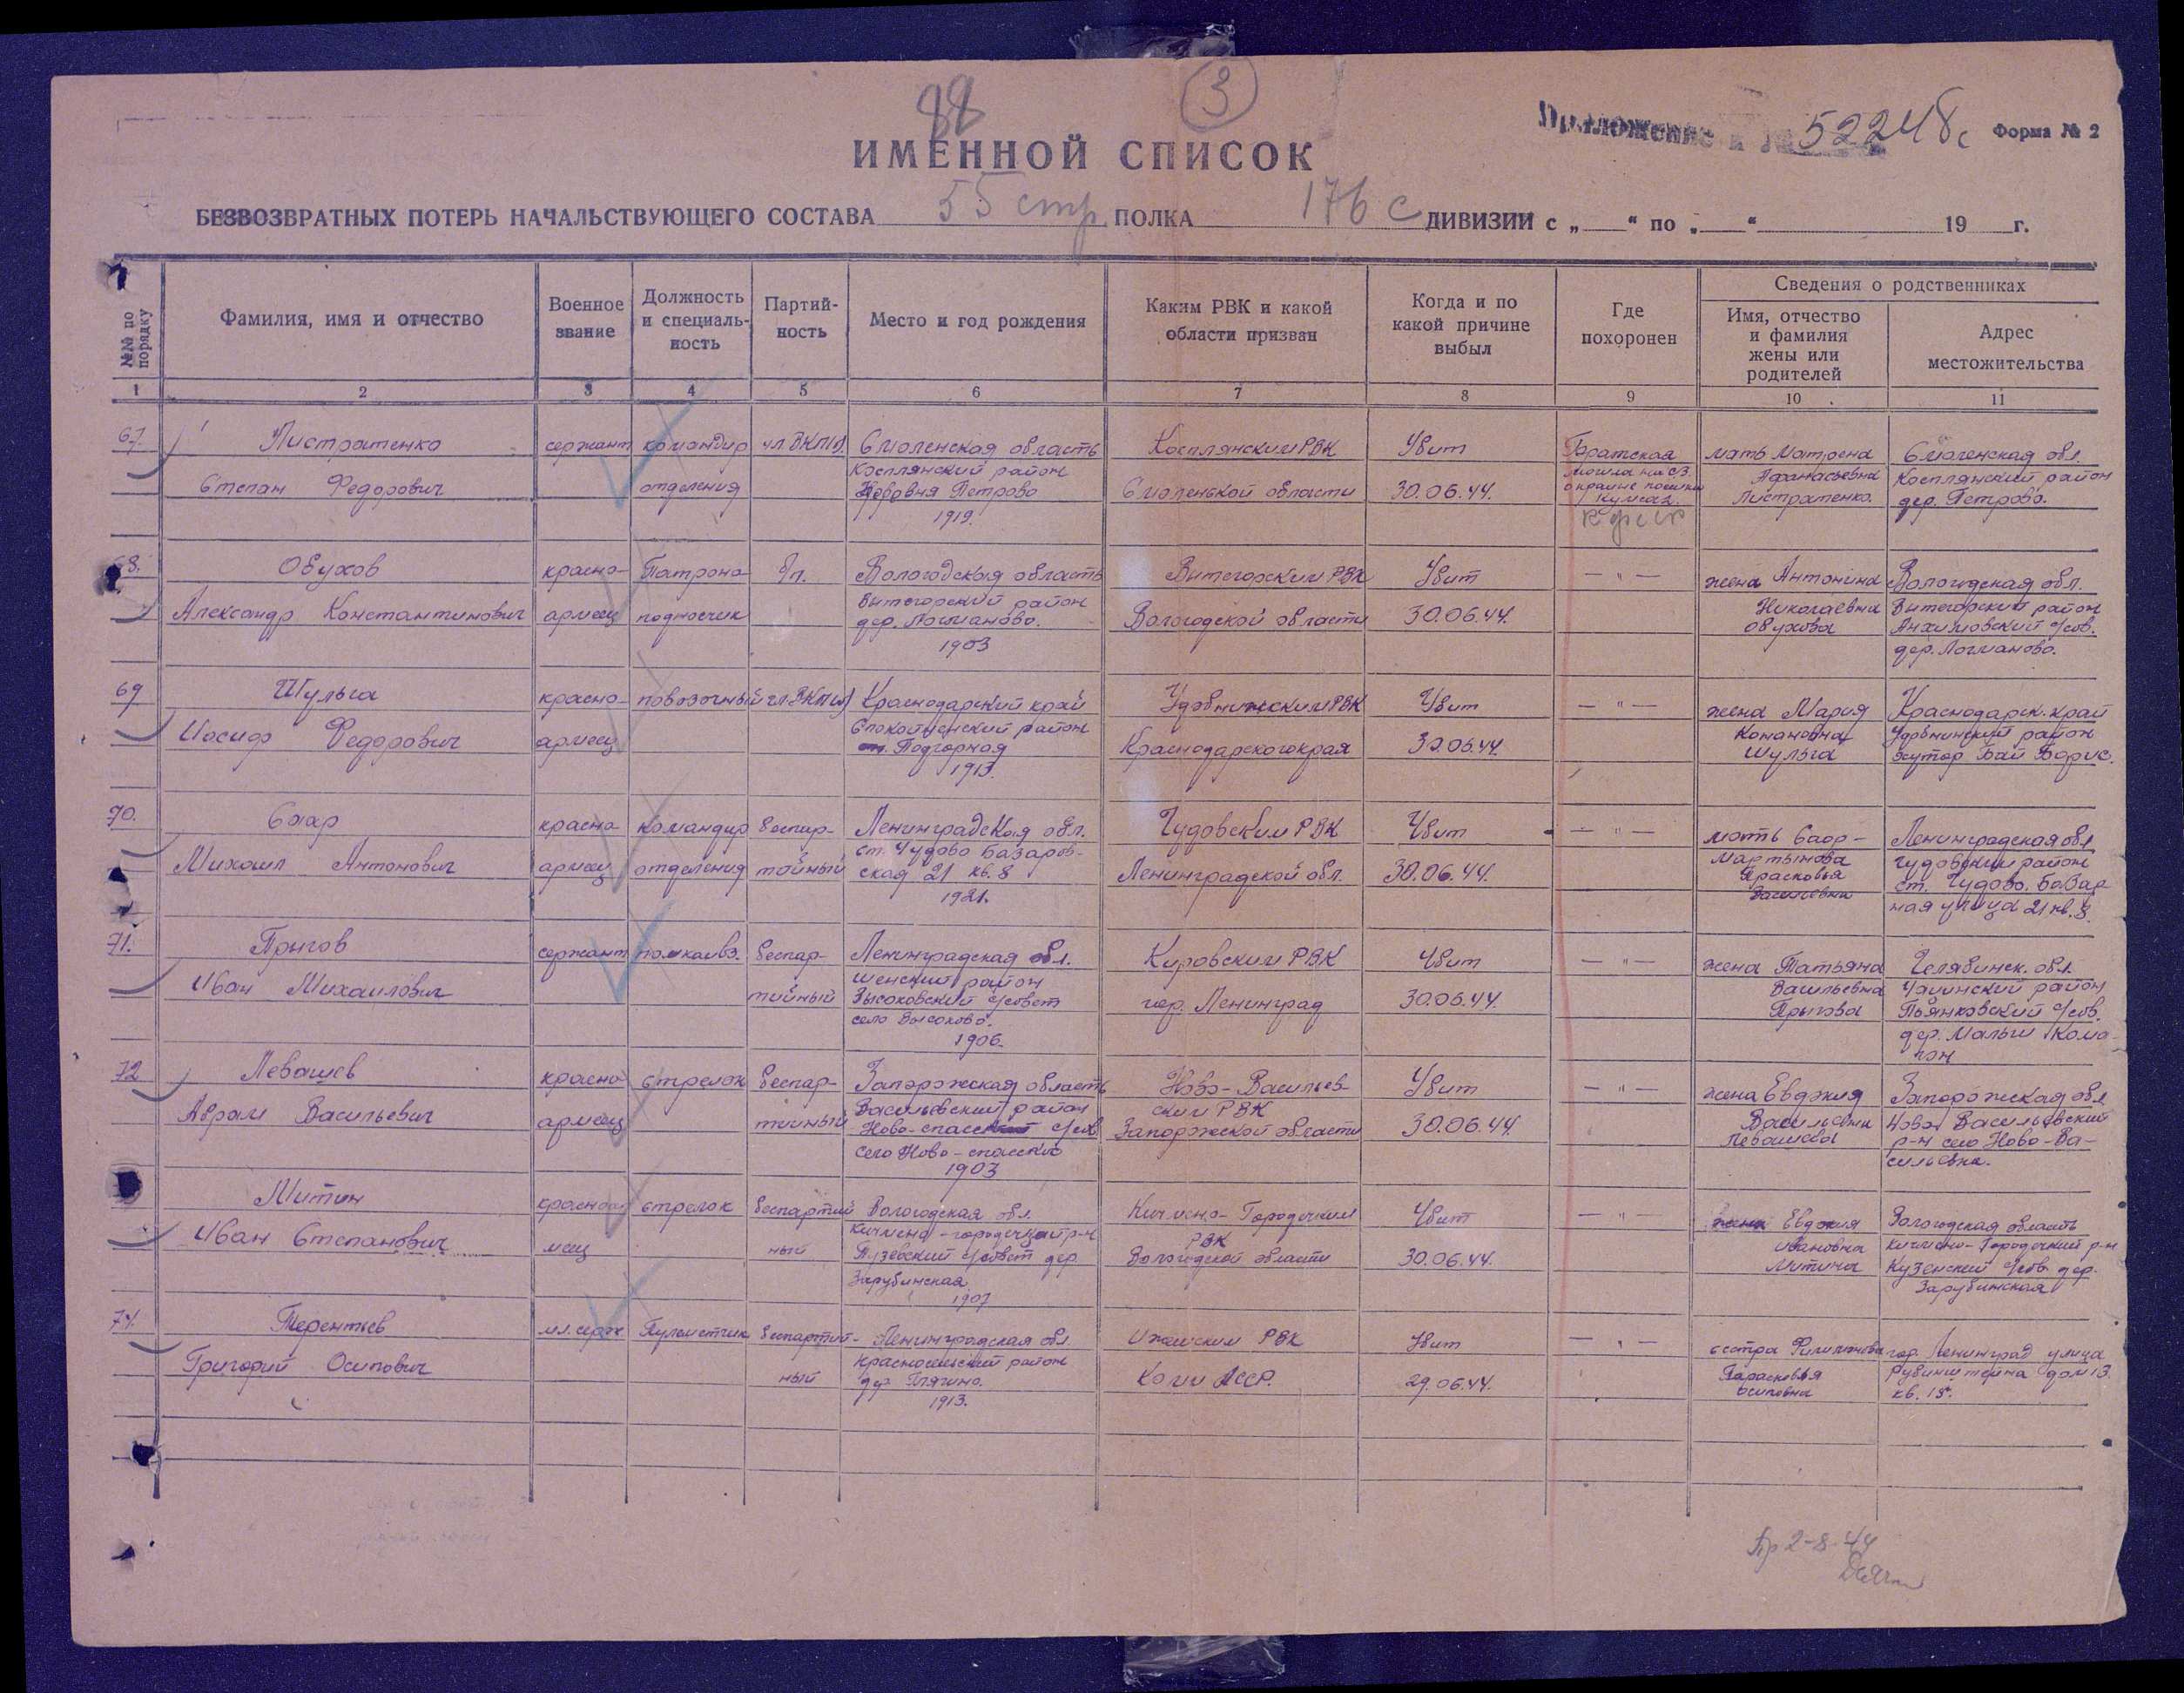 88
3
Приложение к № 52248с
Форма № 2
ИМЕННОЙ СПИСОК
БЕЗВОЗВРАТНЫХ ПОТЕРЬ НАЧАЛЬСТВУЮЩЕГО СОСТАВА 55 стр. ПОЛКА 176 с ДИВИЗИИ с „ “ по „ “ 19 г.
№№ по порядку
Фамилия, имя и отчество
Военное звание
Должность и специаль-ность
Партий-ность
Место и год рождения
Каким РВК и какой области призван
Когда и по какой причине выбыл
Где похоронен
Сведения о родственниках
Имя, отчество и фамилия жены или родителей
Адрес местожительства
1 2 3 4 5 6 7 8 9 10 11
67. Листратенко сержант командир чл ВКП(б) Смоленская область Касплянским РВК Убит Братская мать Матрена Смоленская обл.
Касплянский район могила на СЗ. Афанасьевна Касплянский район
Степан Федорович отделения Деревня Петрово Смоленской области 30.06.44. окраине Листратенко. дер. Петрово.
1919.
68. Обухов красно- Патроно б/п. Вологодская область Вытегорским РВК Убит — " — жена Антонина Вологодская обл.
Вытегорский район Николаевна Вытегорский район
Александр Константинович армеец подносчик дер. Логманово. Вологодской области 30.06.44. Обухова Анхимовский с/сов.
1903 дер. Логманово.
69 Шульга красно- повозочный чл ВКП(б) Краснодарский край Удобненским РВК Убит — " — жена Мария Краснодарск. край
Спокойненский район Удобненский район
Иосиф Федорович армеец ст. Подгорная Краснодарского края 30.06.44. Шульга хутор Бай Борис.
1913.
70. Саар красно командир беспар- Ленинградская обл. Чудовским РВК Убит — " — мать Саар- Ленинградская обл.
ст. Чудово Базаров- Мартынова Чудовский район
Михаил Антонович армеец отделения тийный ская 21 кв. 8 Ленинградской обл. 30.06.44. Прасковья ст. Чудово. Базар
1921. Васильевна ная улица 21 кв. 8.
71. Прыгов сержант помкомвз. беспар- Ленинградская обл. Кировским РВК Убит — " — жена Татьяна Челябинск. обл.
район Васильевна район
Иван Михайлович тийный Высоковский с/совет гор. Ленинград 30.06.44. Прыгова с/сов.
село Высоково. дер. Малый
1906.
72 Левашев красно стрелок беспар- Запорожская область Ново-Васильев Убит — " — жена Евдокия Запорожская обл
Васильевский район ским РВК Васильевна Ново Васильевский
Абрам Васильевич армеец тийный Ново-спасский с/сов Запорожской области 30.06.44. Левашева р-н село Ново-Ва-
село Ново-спасское сильевка.
1903
Митин красноар стрелок беспартий Вологодская обл. Кичмено-Городецким Убит — " — жена Евдокия Вологодская область
Кичмено-городецкий р-н РВК Ивановна Кичмено-Городецкий р-н
Иван Степанович меец ный с/совет дер. Вологодской области 30.06.44. Митина с/сов. дер.
Зарубинская Зарубинская
1907
74. Терентьев мл. серж Пулеметчик беспартий- Ленинградская обл. Ижемским РВК Убит — " — сестра Филиппова гор. Ленинград улица
Красносельский район Рубинштейна дом 13.
Григорий Осипович ный дер. Пязино. Коми АССР. 29.06.44. Парасковья
1913. Осиповна кв. 18.
Пр 2-8-44